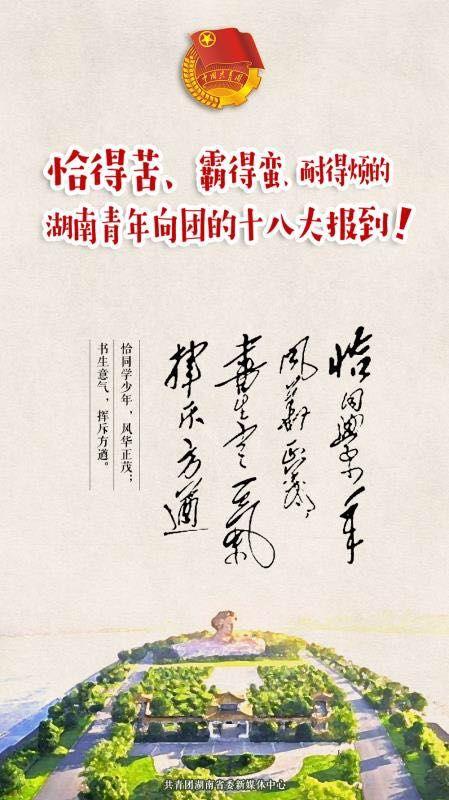 中国共青团
恰得苦、霸得蛮、耐得烦的
湖南青年向团的十八大报到！
恰同學少年
風華正茂
書生意氣
揮斥方遒
恰同学少年，风华正茂；
书生意气，挥斥方遒。
共青团湖南省委新媒体中心